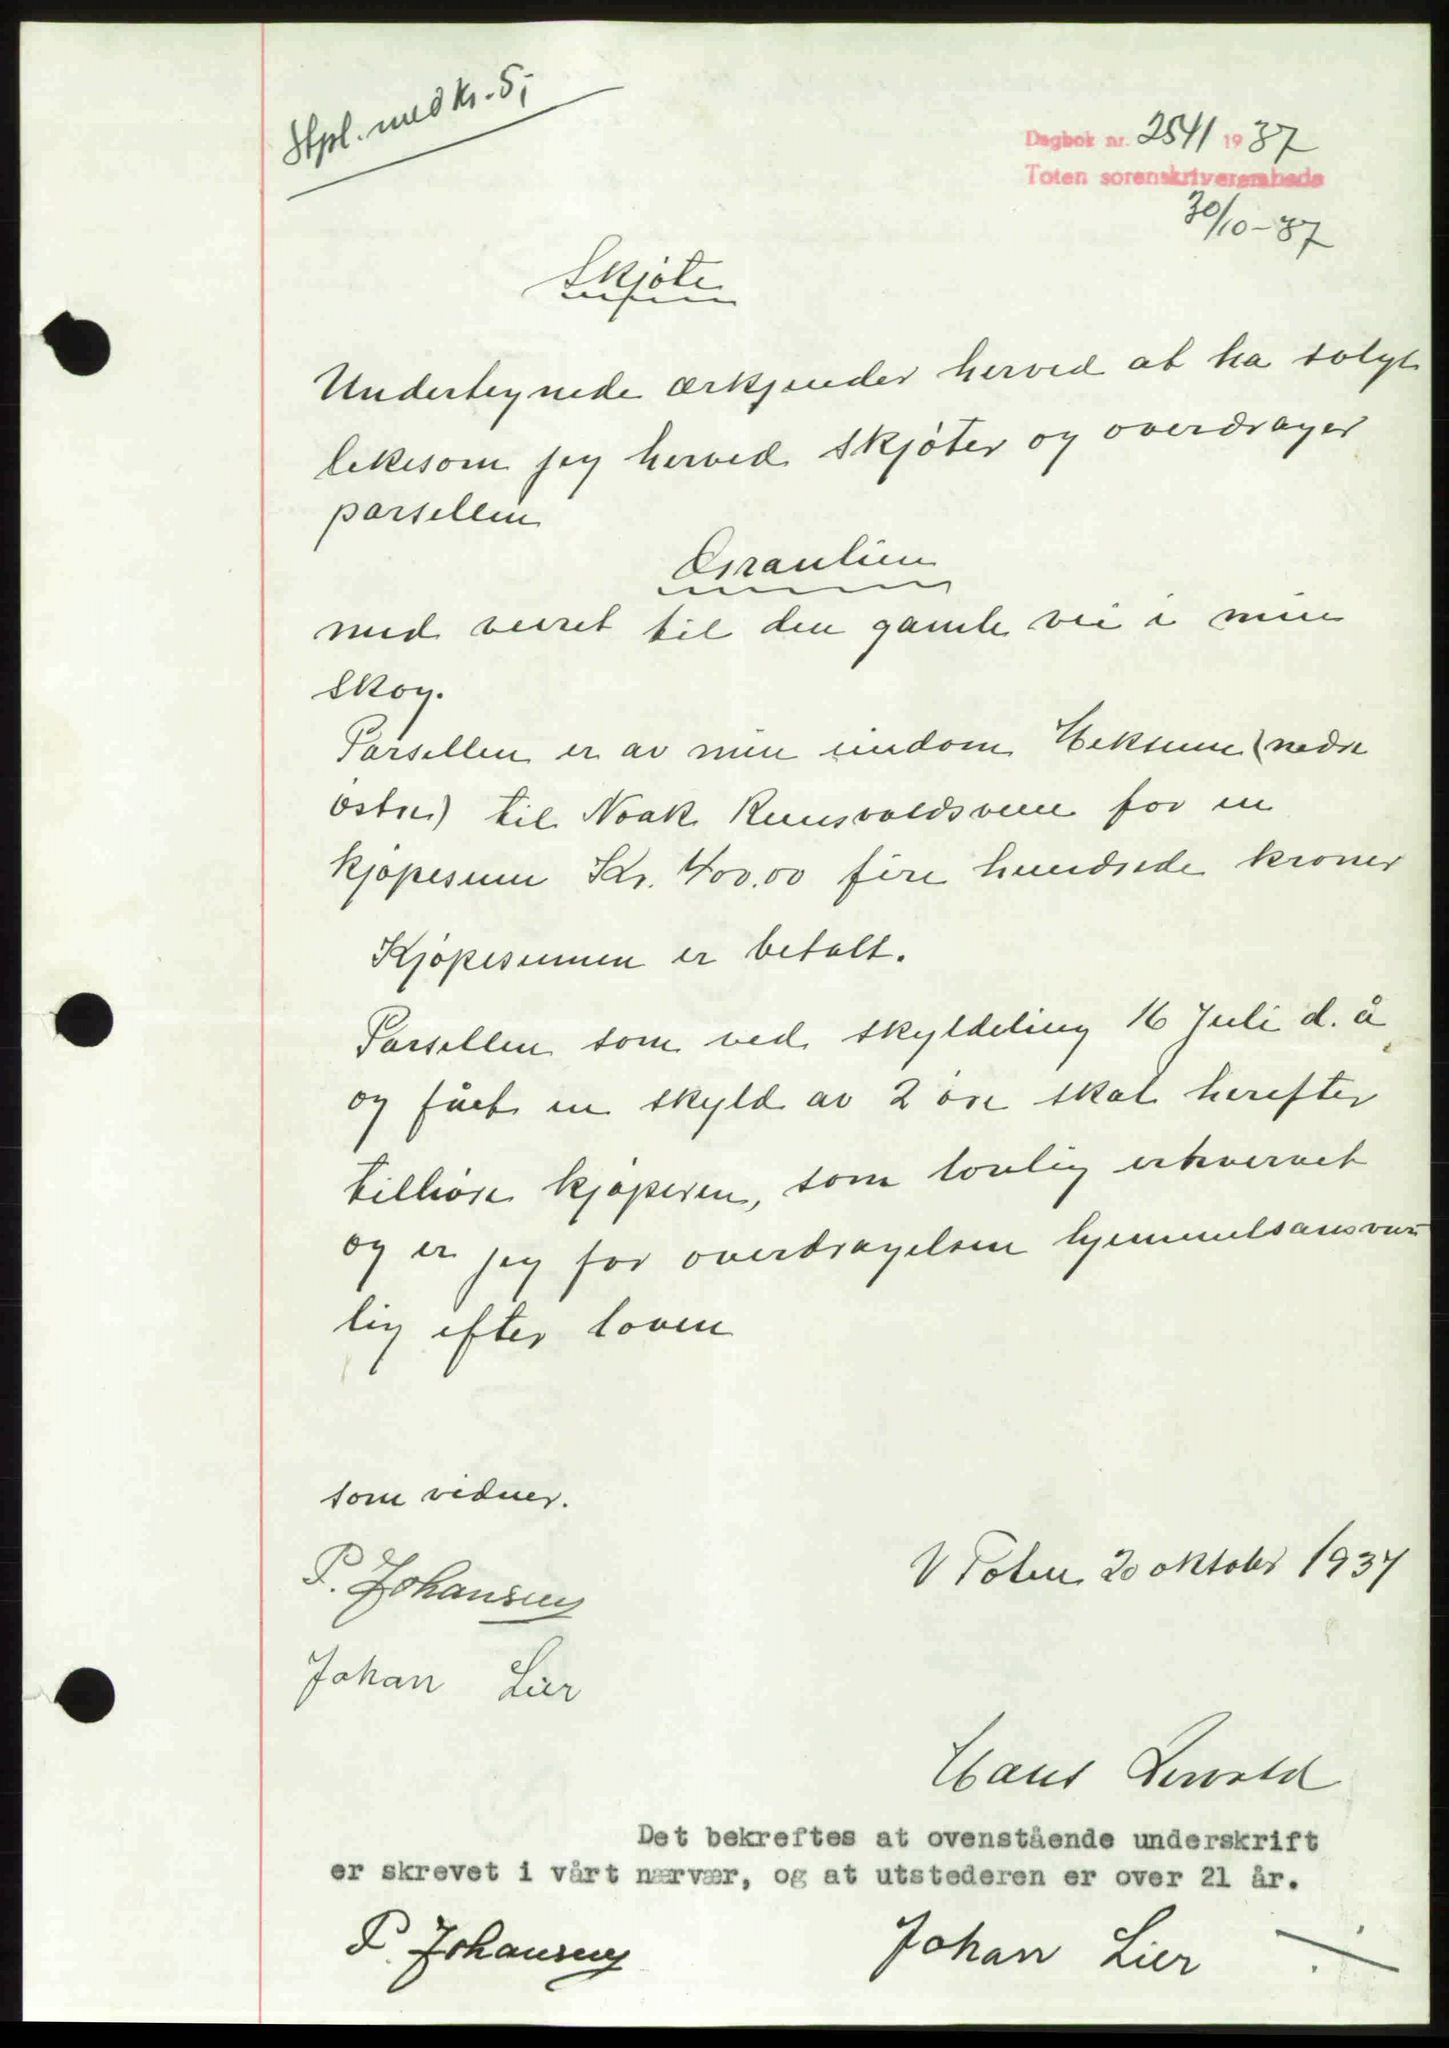 Stpl. med kr. 5,-
Dagbok nr. 2541 1937
Toten sorenskriverembede
30/10-37
Skjøte
Undertegnede ærkjender herved at ha solgt
likesom jeg herved skjøter og overdrager
parsellen
Granlien
med veiret til den gamle vei i min
skog.
Parsellen er av min eiendom Heksum (nedre
østre) til Noak for en
kjøpesum Kr. 400.00 fire hundrede kroner
Kjøpesummen er betalt.
Parsellen som ved skyldeling 16 Juli d. å
og fået en skyld av 2 øre skal herefter
tilhøre kjøperen, som lovlig erhvervet
og er jeg for overdragelsen hjemmelsansvar-
lig efter loven
som vidner.
V Toten 20 oktober 1937
P. Johansen
Johan Lier
Hans
Det bekreftes at ovenstående underskrift
er skrevet i vårt nærvær, og at utstederen er over 21 år.
P. Johansen Johan Lier